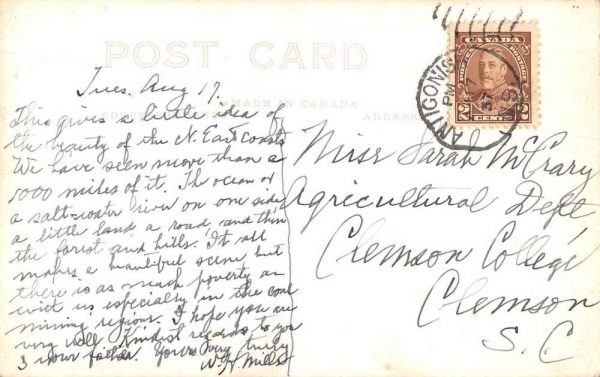 POST CARD
MADE IN CANADA
ADDRESS
CANADA
POSTES POSTAGE
2 CENTS 2
ANTIGONISH
PM
17
37
N.S.
Tues. Aug 17.
This gives a little idea of
the beauty of the N. East Coast
We have seen more than a
1000 miles of it. The ocean or
a salt-water river on one side
a little land a road, and then
the forest and hills. It all
makes a beautiful scene but
there is as much poverty as
with us especially in the coal
mining regions. I hope you are
very well. Kindest regards to you
& your father. Yours very truly
W. H. Mills
Miss Sarah McCrary
Agricultural Dept
Clemson College
Clemson
S. C